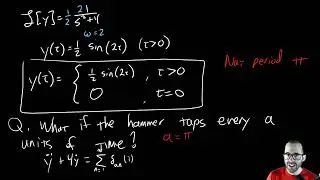 ℒ[y] = 1/2 21/s²+4
ω=2
y(t) = 1/2 sin(2t) (t>0)
y(t) = { 1/2 sin(2t) , t>0
0 , t=0
Nat period π
Q. What if the hammer taps every a
units of time?
a=π
ÿ + 4y = Σ n=1 δna(t)